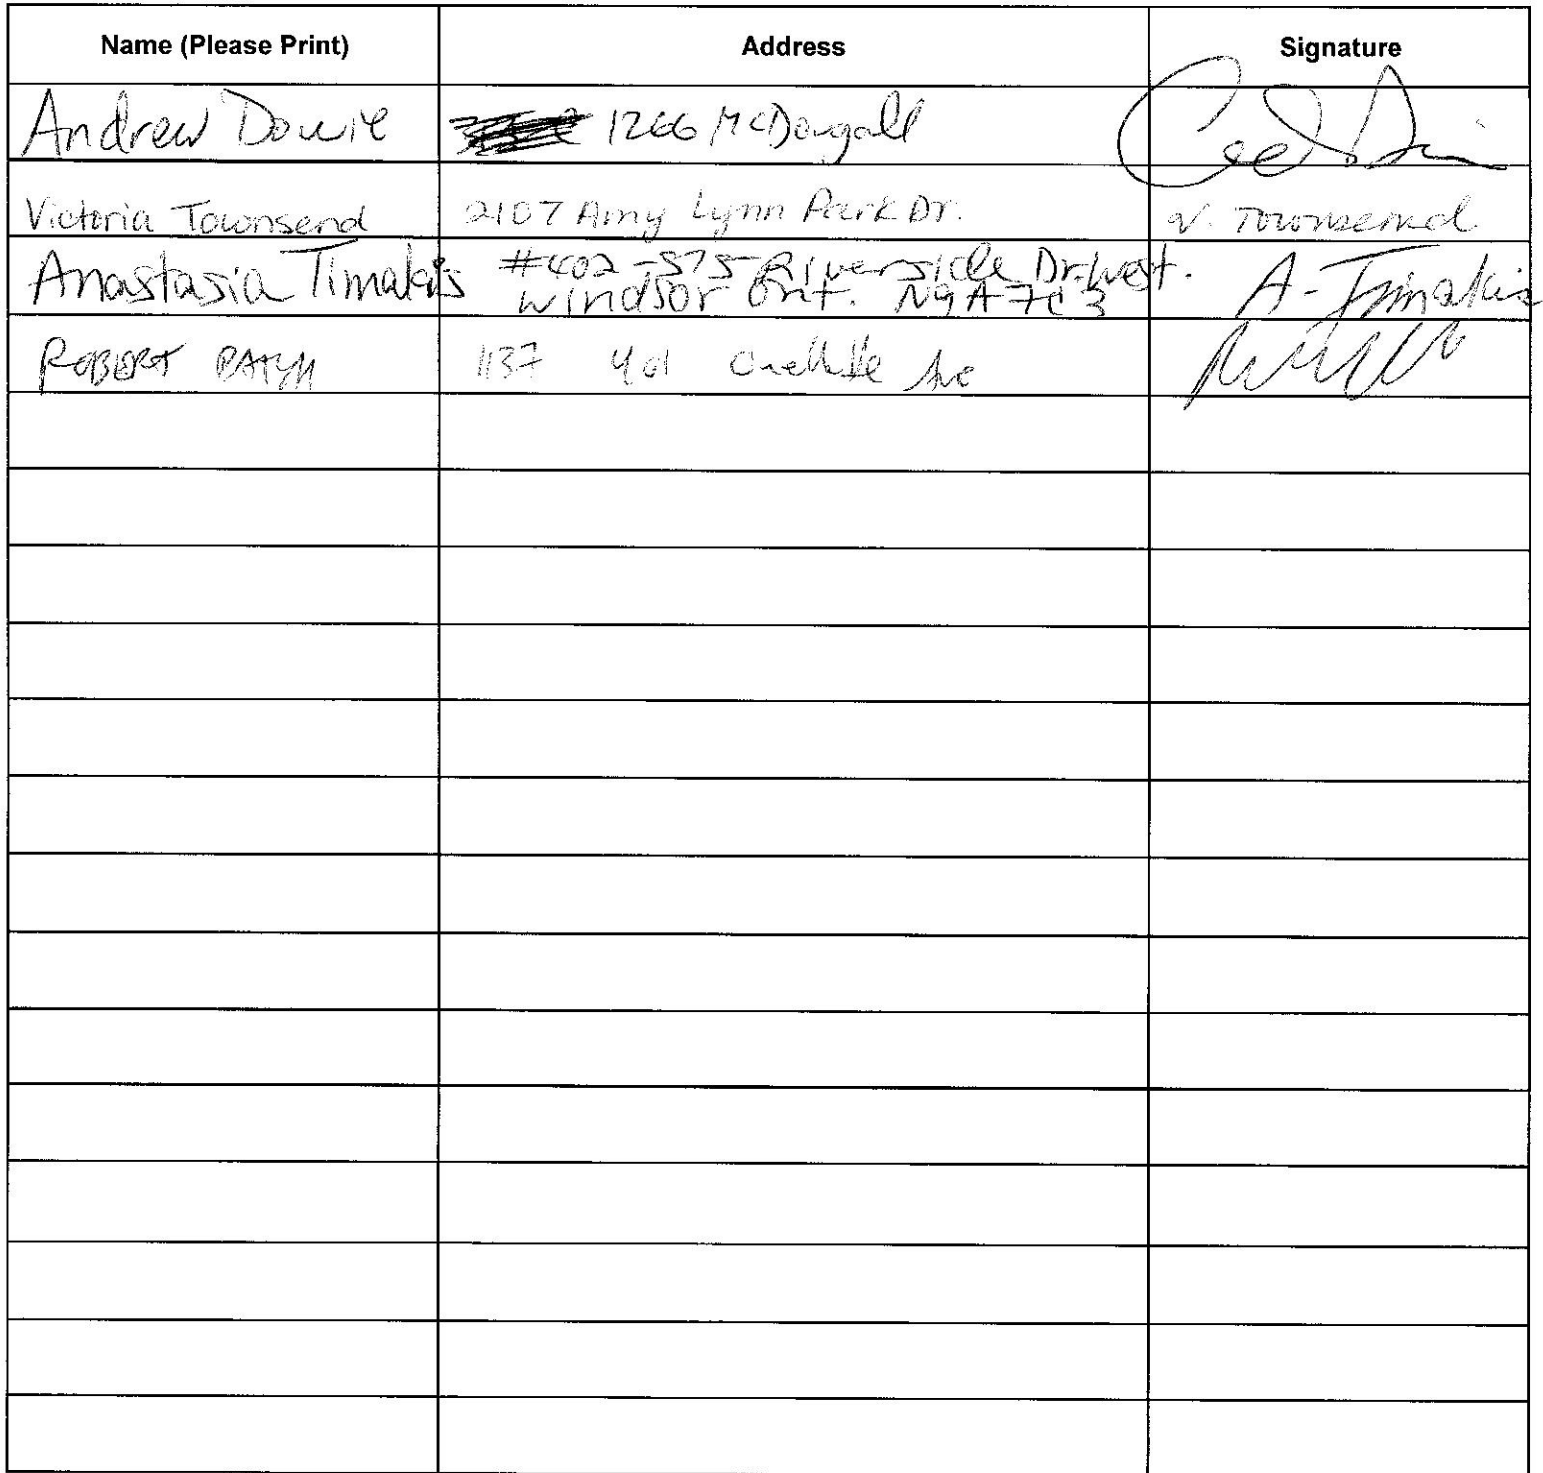 Name (Please Print) Address Signature
Andrew Dowie 1266 McDougall
Victoria Townsend 2107 Amy Lynn Park Dr. V. Townsend
Anastasia Timakis #402-575-Riverside Dr. West. A-Timakis
Windsor Ont. N9A-7C3
ROBERT 1137 401 Ouellette Ave